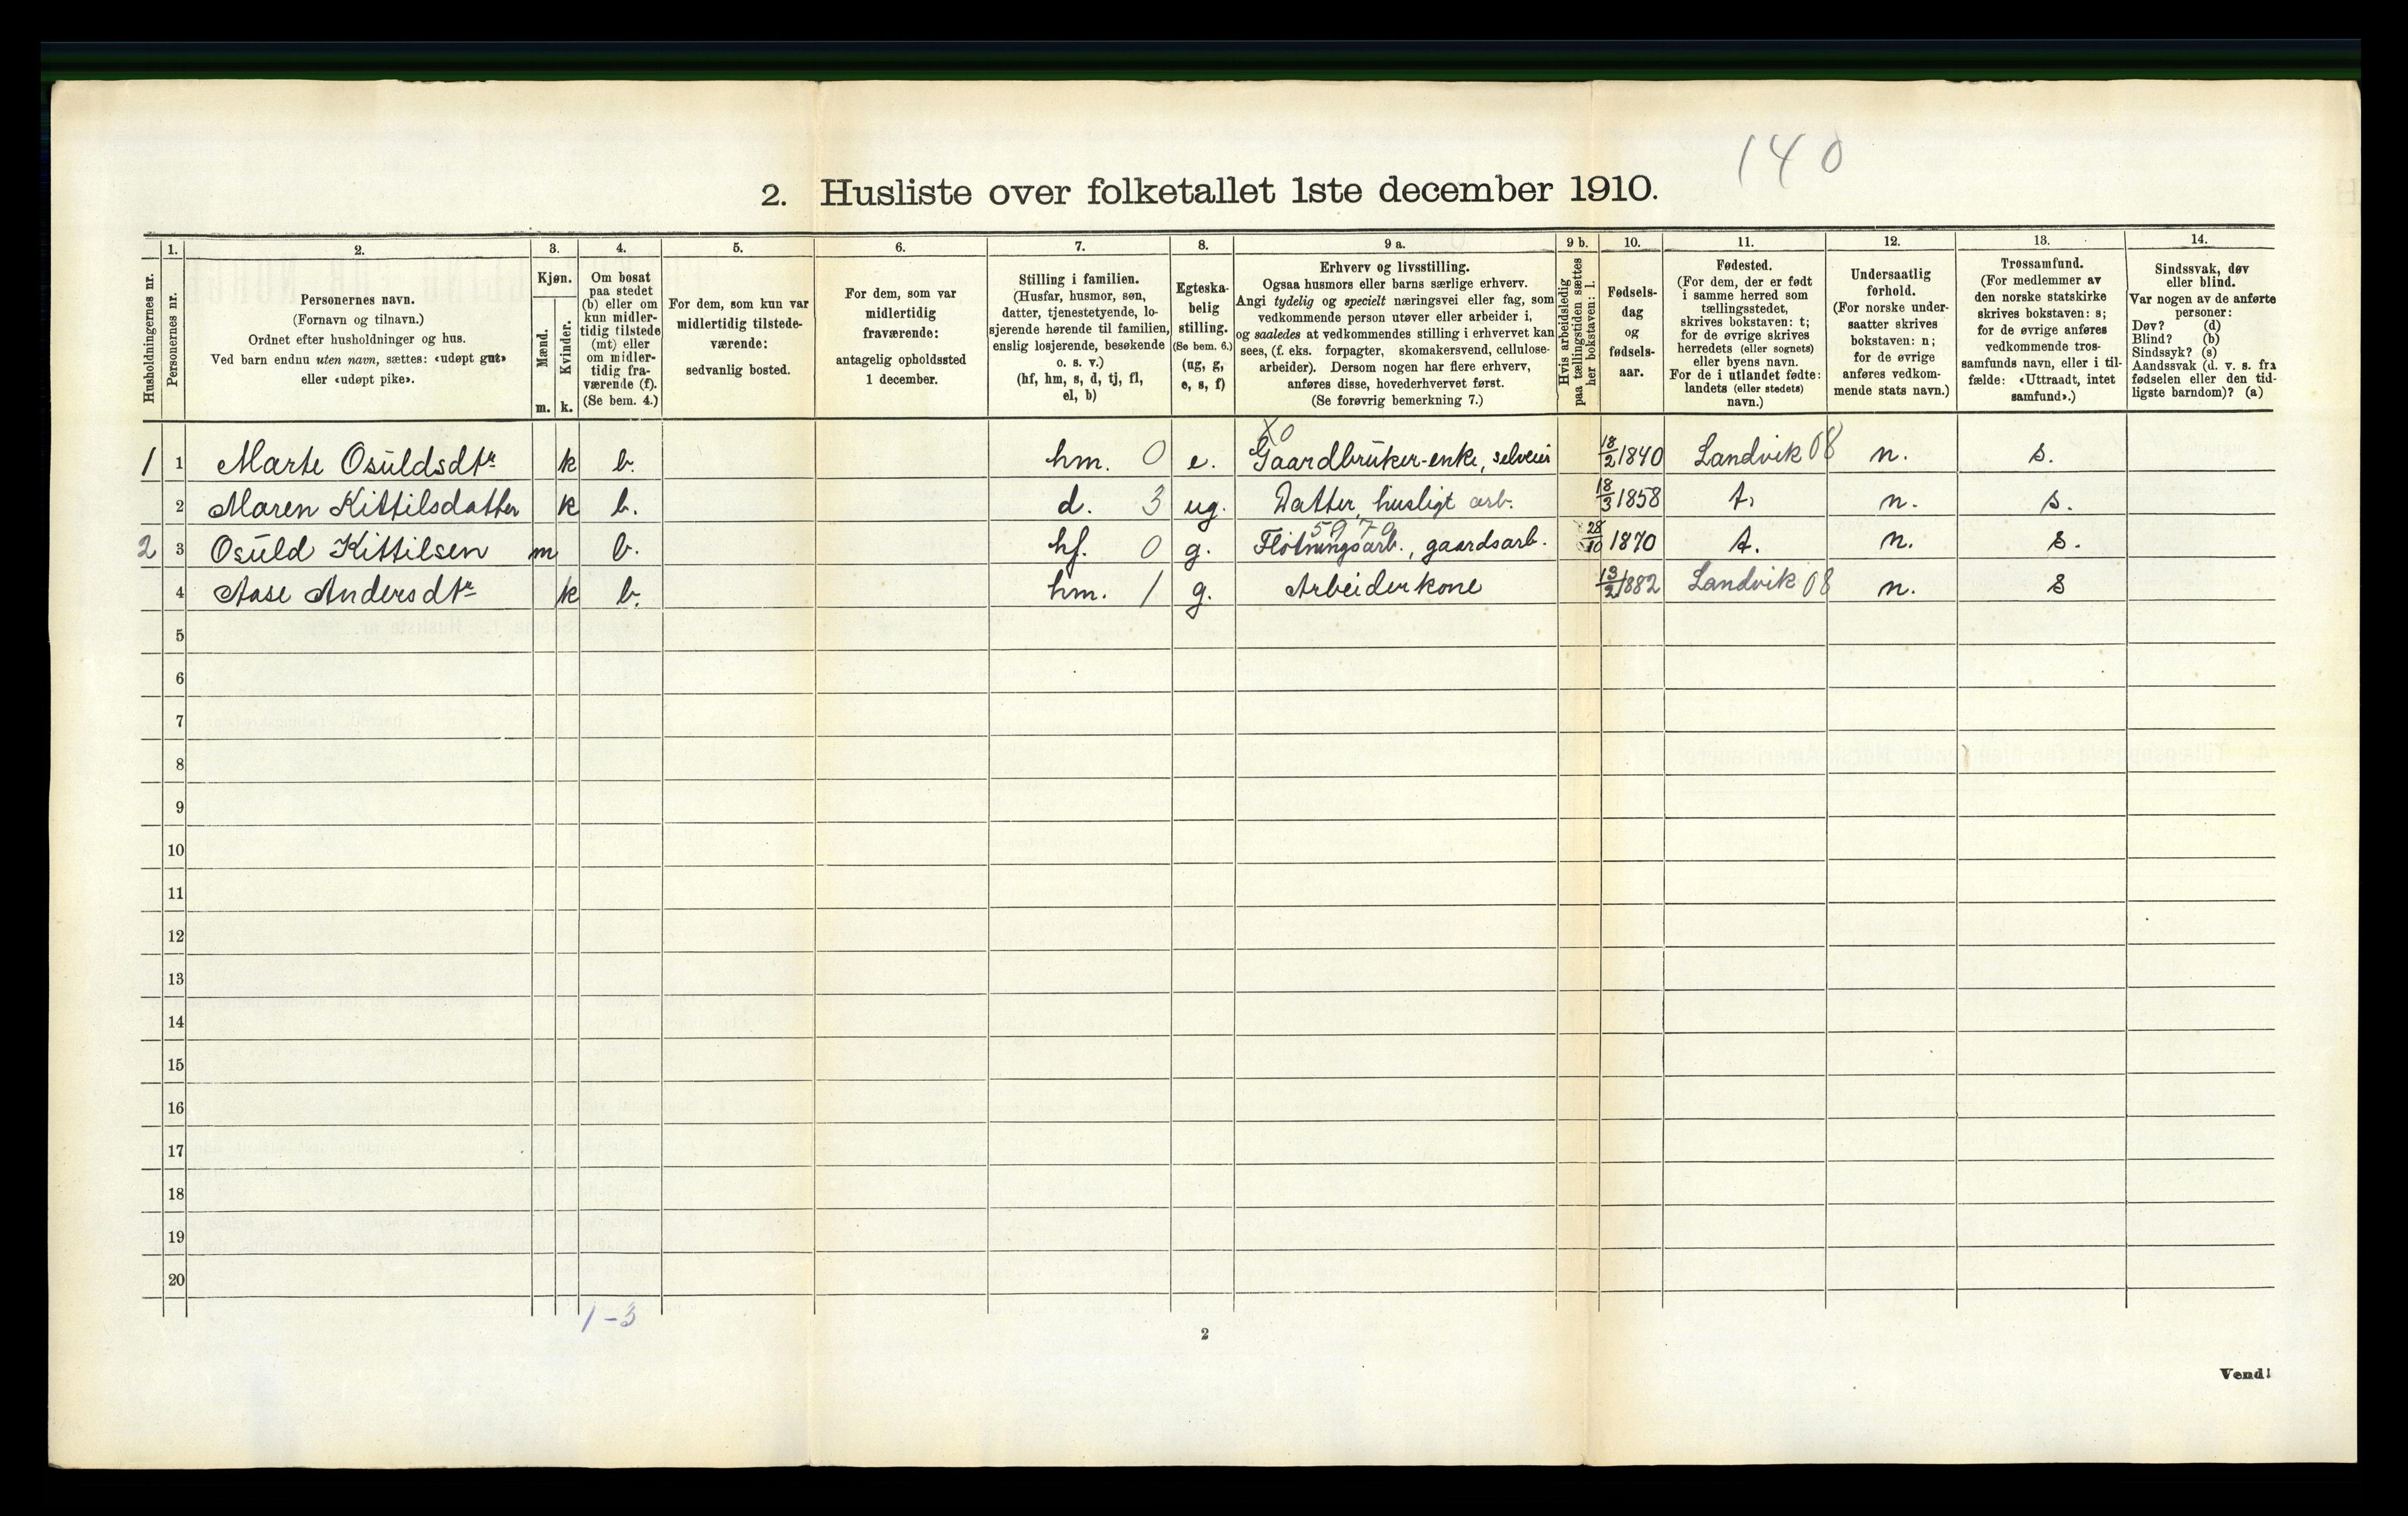 140
2. Husliste over folketallet 1ste december 1910.
Husholdningernes nr.
1. Personernes nr.
2. Personernes navn. (Fornavn og tilnavn.) Ordnet efter husholdninger og hus. Ved barn endnu uten navn, sættes: «udøpt gut» eller «udøpt pike».
3. Kjøn. Mænd. m. Kvinder. k.
4. Om bosat paa stedet (b) eller om kun midlertidig tilstede (mt) eller om midlertidig fraværende (f). (Se bem. 4.)
5. For dem, som kun var midlertidig tilstedeværende: sedvanlig bosted.
6. For dem, som var midlertidig fraværende: antagelig opholdssted 1 december.
7. Stilling i familien. (Husfar, husmor, søn, datter, tjenestetyende, losjerende hørende til familien, enslig losjerende, besøkende o. s. v.) (hf, hm, s, d, tj, fl, el, b)
8. Egteskabelig stilling. (Se bem. 6.) (ug, g, e, s, f)
9 a. Erhverv og livsstilling. Ogsaa husmors eller barns særlige erhverv. Angi tydelig og specielt næringsvei eller fag, som vedkommende person utøver eller arbeider i, og saaledes at vedkommendes stilling i erhvervet kan sees, (f. eks. forpagter, skomakersvend, cellulosearbeider). Dersom nogen har flere erhverv, anføres disse, hovederhvervet først. (Se forøvrig bemerkning 7.)
9 b. Hvis arbeidsledig paa tællingstiden sættes her bokstaven: l.
10. Fødselsdag og fødselsaar.
11. Fødested. (For dem, der er født i samme herred som tællingsstedet, skrives bokstaven: t; for de øvrige skrives herredets (eller sognets) eller byens navn. For de i utlandet fødte: landets (eller stedets) navn.)
12. Undersaatlig forhold. (For norske undersaatter skrives bokstaven: n; for de øvrige anføres vedkommende stats navn.)
13. Trossamfund. (For medlemmer av den norske statskirke skrives bokstaven: s; for de øvrige anføres vedkommende trossamfunds navn, eller i tilfælde: «Uttraadt, intet samfund».)
14. Sindssvak, døv eller blind. Var nogen av de anførte personer: Døv? (d) Blind? (b) Sindssyk? (s) Aandssvak (d. v. s. fra fødselen eller den tidligste barndom)? (a)
X0
1 1 Marte Osuldsdtr k b. hm. 0 e. Gaardbruker-enke, selveier 18/2 1840 Landvik 08 n. s.
2 Maren Kittilsdatter k b. d. 3 ug. Datter, husligt arb. 18/3 1858 t. n. s.
5979
2 3 Osuld Kittilsen m b. hf. 0 g. Fløtningsarb., gaardsarb. 28/10 1870 t. n. s.
4 Aase Andersdtr k b. hm. 1 g. Arbeiderkone 13/2 1882 Landvik 08 n. s
5
6
7
8
9
10
11
12
13
14
15
16
17
18
19
20
1-3
2
Vend!